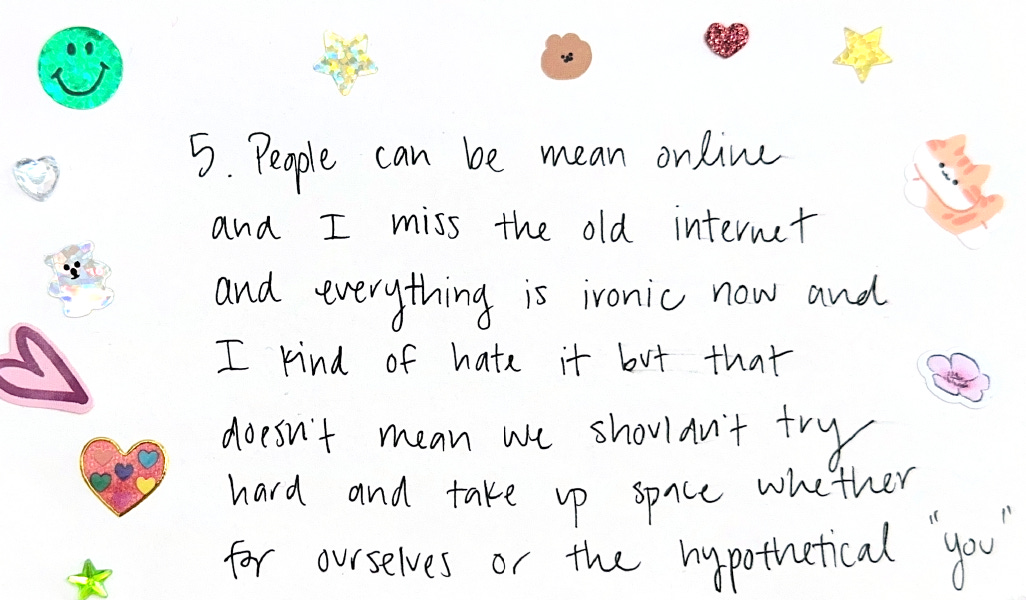 5. People can be mean online
and I miss the old internet
and everything is ironic now and
I kind of hate it but that
doesn't mean we shouldn't try
hard and take up space whether
for ourselves or the hypothetical "you"